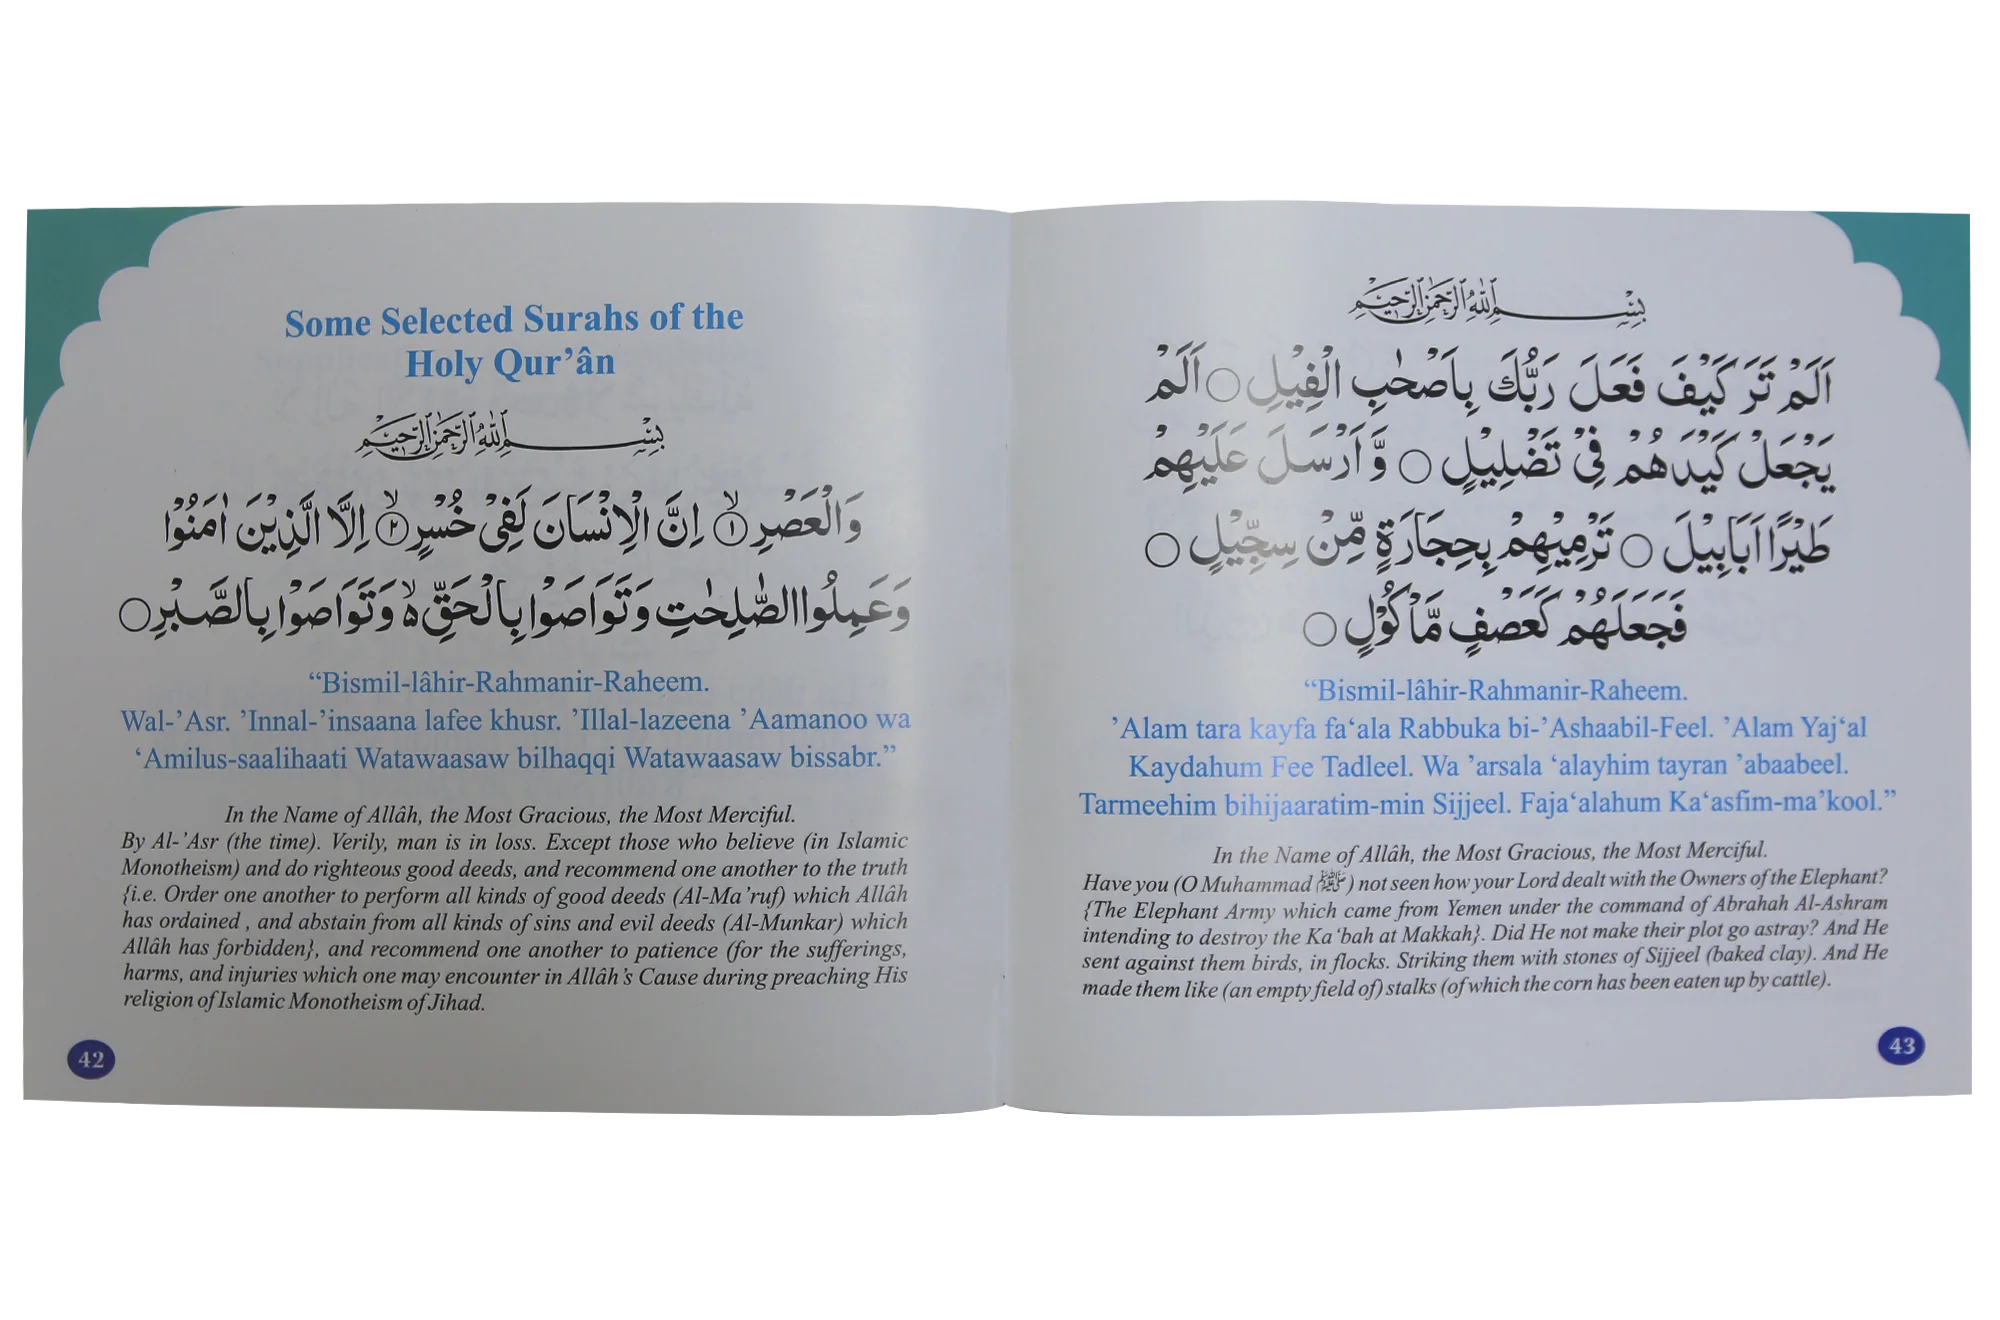 Some Selected Surahs of the
Holy Qur’ân
بِسْمِ اللهِ الرَّحْمٰنِ الرَّحِيْمِ
وَالْعَصْرِ ۙ﴿١﴾ اِنَّ الْاِنْسَانَ لَفِيْ خُسْرٍ ۙ﴿٢﴾ اِلَّا الَّذِيْنَ اٰمَنُوْا
وَعَمِلُوا الصّٰلِحٰتِ وَتَوَاصَوْا بِالْحَقِّ ەۙ وَتَوَاصَوْا بِالصَّبْرِ ○
“Bismil-lâhir-Rahmanir-Raheem.
Wal-’Asr. ’Innal-’insaana lafee khusr. ’Illal-lazeena ’Aamanoo wa
‘Amilus-saalihaati Watawaasaw bilhaqqi Watawaasaw bissabr.”
In the Name of Allâh, the Most Gracious, the Most Merciful.
By Al-’Asr (the time). Verily, man is in loss. Except those who believe (in Islamic
Monotheism) and do righteous good deeds, and recommend one another to the truth
{i.e. Order one another to perform all kinds of good deeds (Al-Ma’ruf) which Allâh
has ordained , and abstain from all kinds of sins and evil deeds (Al-Munkar) which
Allâh has forbidden}, and recommend one another to patience (for the sufferings,
harms, and injuries which one may encounter in Allâh’s Cause during preaching His
religion of Islamic Monotheism of Jihad.
42
بِسْمِ اللهِ الرَّحْمٰنِ الرَّحِيْمِ
اَلَمْ تَرَ كَيْفَ فَعَلَ رَبُّكَ بِاَصْحٰبِ الْفِيْلِ ○ اَلَمْ
يَجْعَلْ كَيْدَهُمْ فِيْ تَضْلِيْلٍ ○ وَّاَرْسَلَ عَلَيْهِمْ
طَيْرًا اَبَابِيْلَ ○ تَرْمِيْهِمْ بِحِجَارَةٍ مِّنْ سِجِّيْلٍ ○
فَجَعَلَهُمْ كَعَصْفٍ مَّاْكُوْلٍ ○
“Bismil-lâhir-Rahmanir-Raheem.
’Alam tara kayfa fa‘ala Rabbuka bi-’Ashaabil-Feel. ’Alam Yaj‘al
Kaydahum Fee Tadleel. Wa ’arsala ‘alayhim tayran ’abaabeel.
Tarmeehim bihijaaratim-min Sijjeel. Faja‘alahum Ka‘asfim-ma’kool.”
In the Name of Allâh, the Most Gracious, the Most Merciful.
Have you (O Muhammad ﷺ) not seen how your Lord dealt with the Owners of the Elephant?
{The Elephant Army which came from Yemen under the command of Abrahah Al-Ashram
intending to destroy the Ka‘bah at Makkah}. Did He not make their plot go astray? And He
sent against them birds, in flocks. Striking them with stones of Sijjeel (baked clay). And He
made them like (an empty field of) stalks (of which the corn has been eaten up by cattle).
43